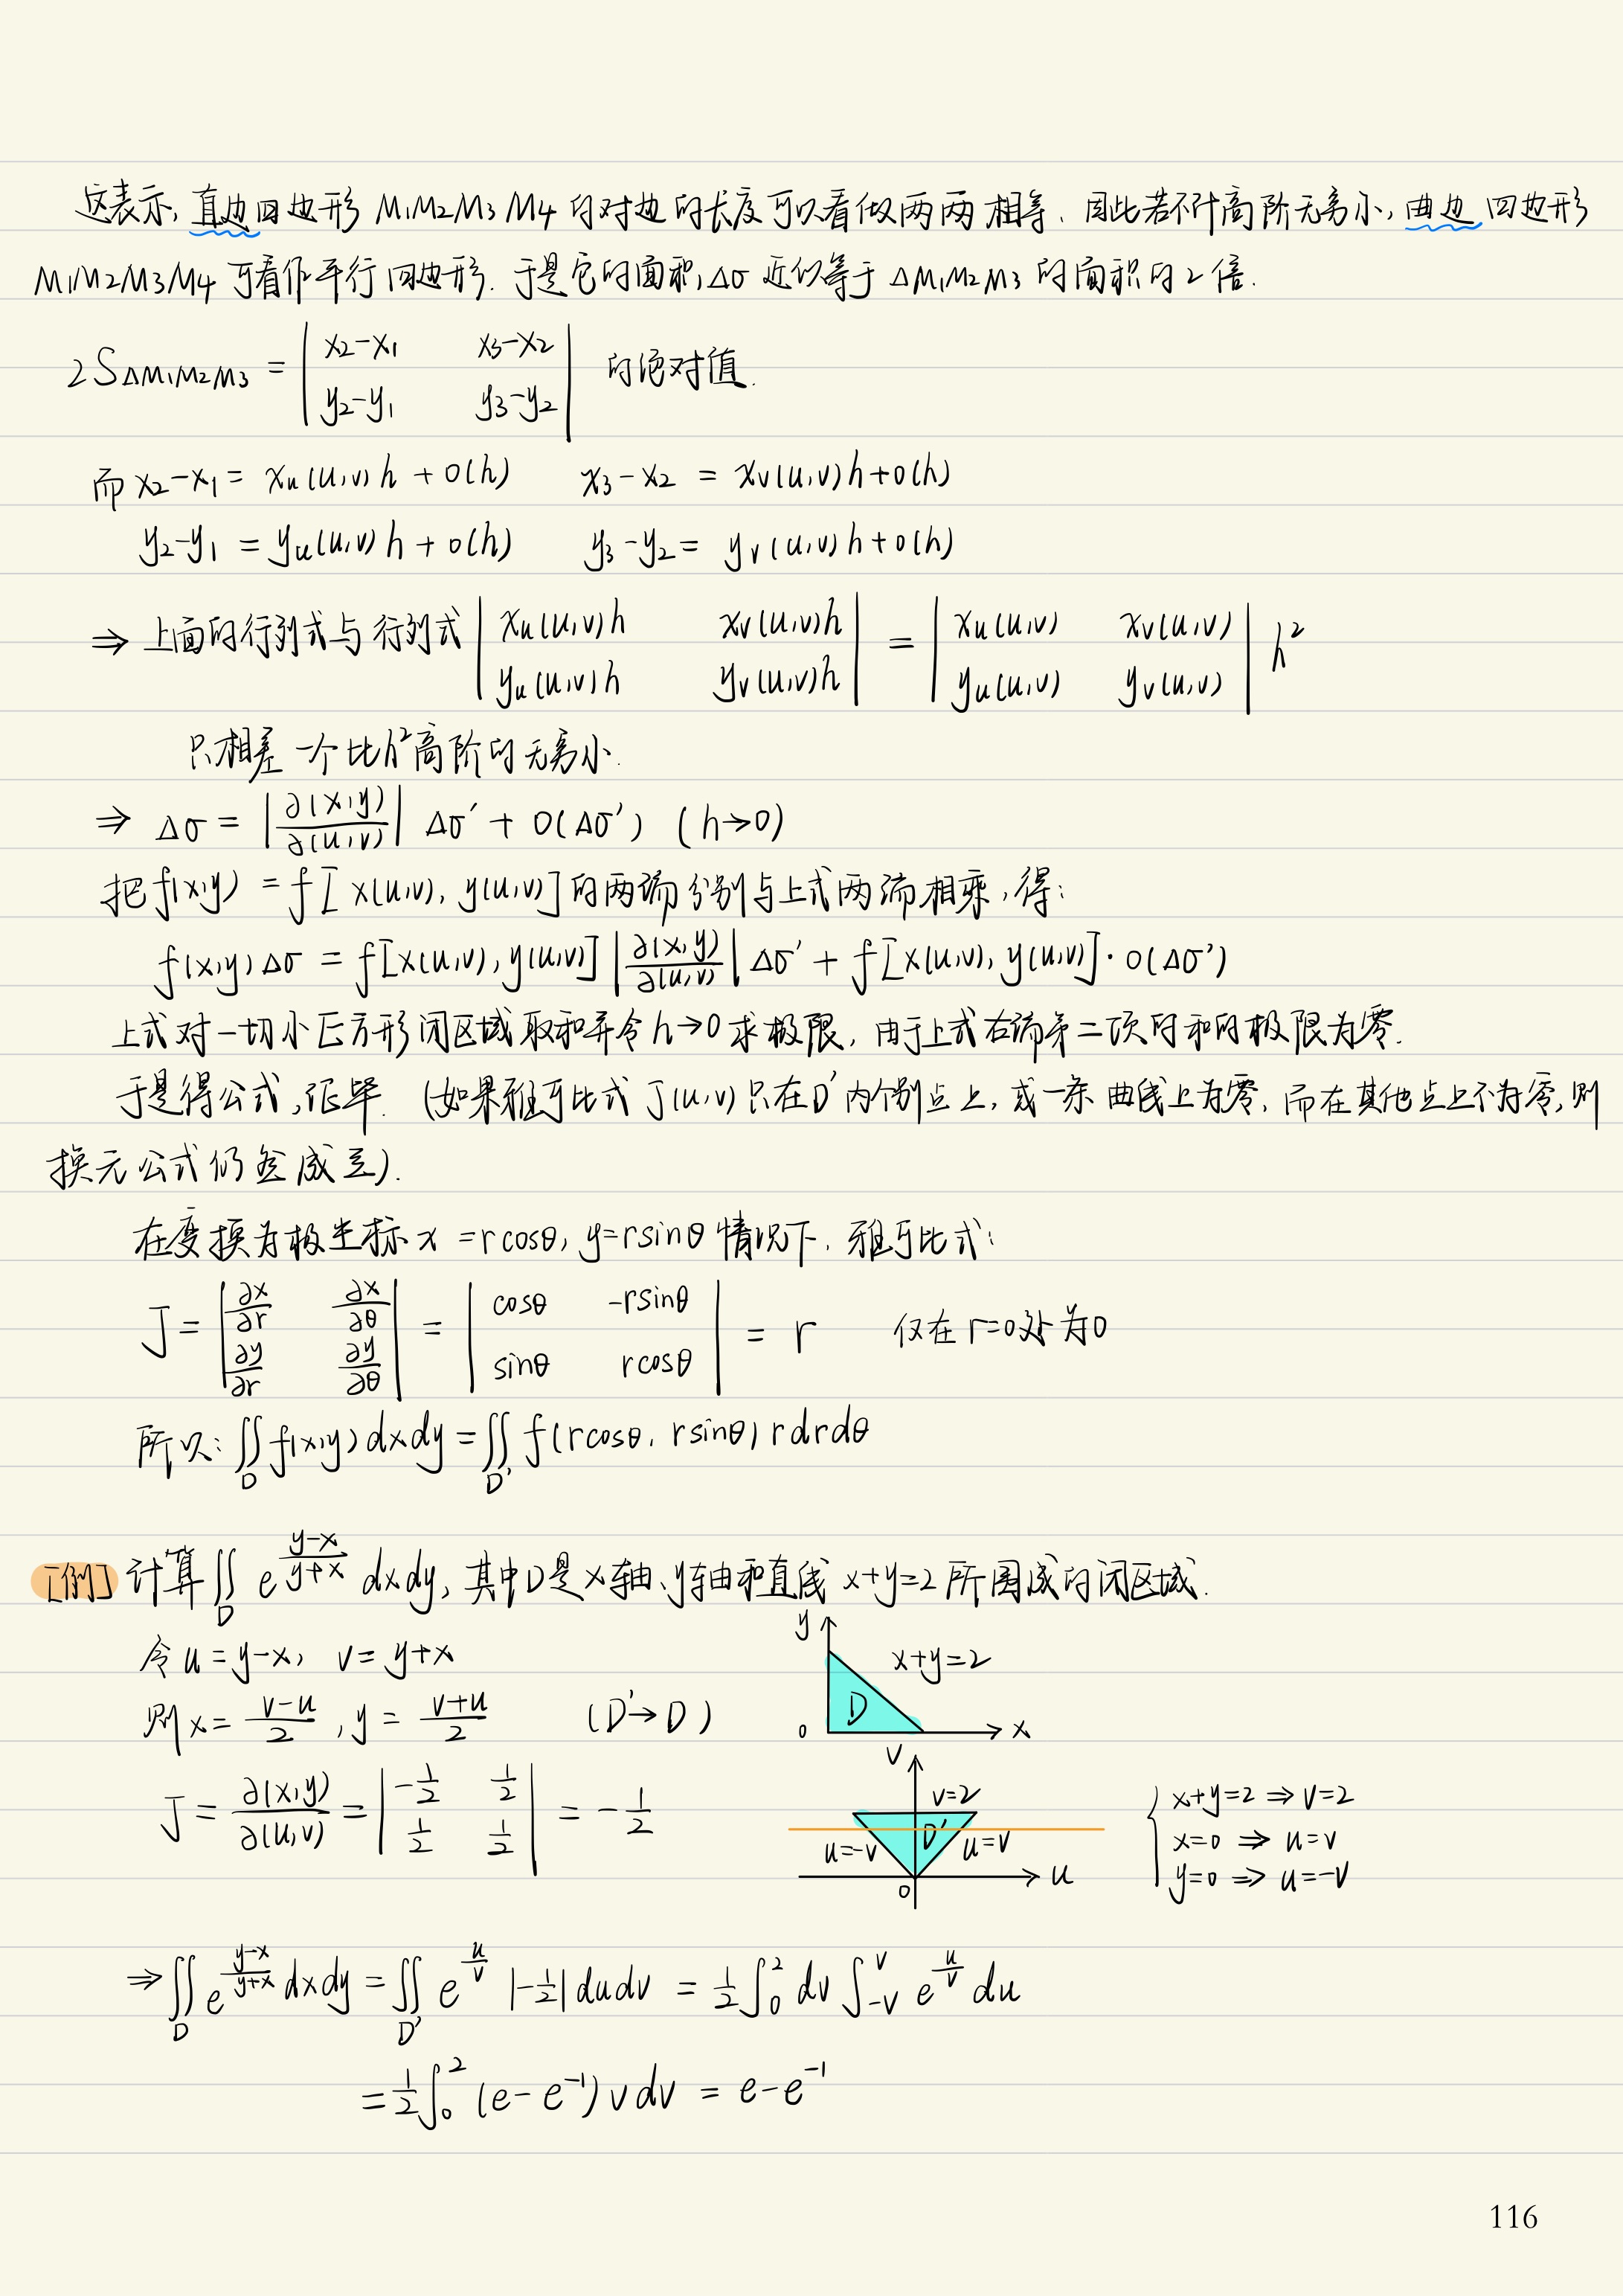 这表示, 直边四边形 M₁M₂M₃M₄ 的对边的长度可以看做两两相等. 因此若不计高阶无穷小, 曲边四边形
M₁M₂M₃M₄ 可看作平行四边形. 于是它的面积 Δσ 近似等于 ΔM₁M₂M₃ 的面积的2倍.
2S_{ΔM₁M₂M₃} = | x₂-x₁  x₃-x₂ ; y₂-y₁  y₃-y₂ | 的绝对值.
而 x₂-x₁ = x_u(u,v)h + o(h)   x₃-x₂ = x_v(u,v)h+o(h)
y₂-y₁ = y_u(u,v)h + o(h)   y₃-y₂ = y_v(u,v)h+o(h)
⇒ 上面的行列式与行列式 | x_u(u,v)h  x_v(u,v)h ; y_u(u,v)h  y_v(u,v)h | = | x_u(u,v)  x_v(u,v) ; y_u(u,v)  y_v(u,v) | h²
只相差一个比h²高阶的无穷小.
⇒ Δσ = |∂(x,y)/∂(u,v)| Δσ' + o(Δσ') (h→0)
把 f(x,y) = f[x(u,v), y(u,v)] 的两端分别与上式两端相乘, 得:
f(x,y)Δσ = f[x(u,v), y(u,v)] |∂(x,y)/∂(u,v)| Δσ' + f[x(u,v), y(u,v)]·o(Δσ')
上式对一切小正方形闭区域取和并令h→0求极限, 由于上式右端第二项的和的极限为零.
于是得公式, 证毕. (如果雅可比式 J(u,v) 只在D'内个别点上, 或一条曲线上为零, 而在其他点上不为零, 则
换元公式仍然成立).
在变换为极坐标 x=rcosθ, y=rsinθ 情况下, 雅可比式:
J = | ∂x/∂r  ∂x/∂θ ; ∂y/∂r  ∂y/∂θ | = | cosθ  -rsinθ ; sinθ  rcosθ | = r   仅在r=0处为0
所以: ∬_D f(x,y)dxdy = ∬_{D'} f(rcosθ, rsinθ) r dr dθ
[例] 计算 ∬_D e^{(y-x)/(y+x)} dxdy, 其中D是x轴、y轴和直线 x+y=2 所围成的闭区域.
令 u=y-x, v=y+x
则 x = (v-u)/2, y = (v+u)/2   (D'→D)
y
x+y=2
D
0
x
J = ∂(x,y)/∂(u,v) = | -1/2  1/2 ; 1/2  1/2 | = -1/2
v
v=2
D'
u=-v
u=v
0
u
{ x+y=2 ⇒ v=2
x=0 ⇒ u=v
y=0 ⇒ u=-v
⇒ ∬_D e^{(y-x)/(y+x)} dxdy = ∬_{D'} e^{u/v} |-1/2| dudv = 1/2 ∫₀² dv ∫_{-v}^{v} e^{u/v} du
= 1/2 ∫₀² (e-e⁻¹) v dv = e-e⁻¹
116